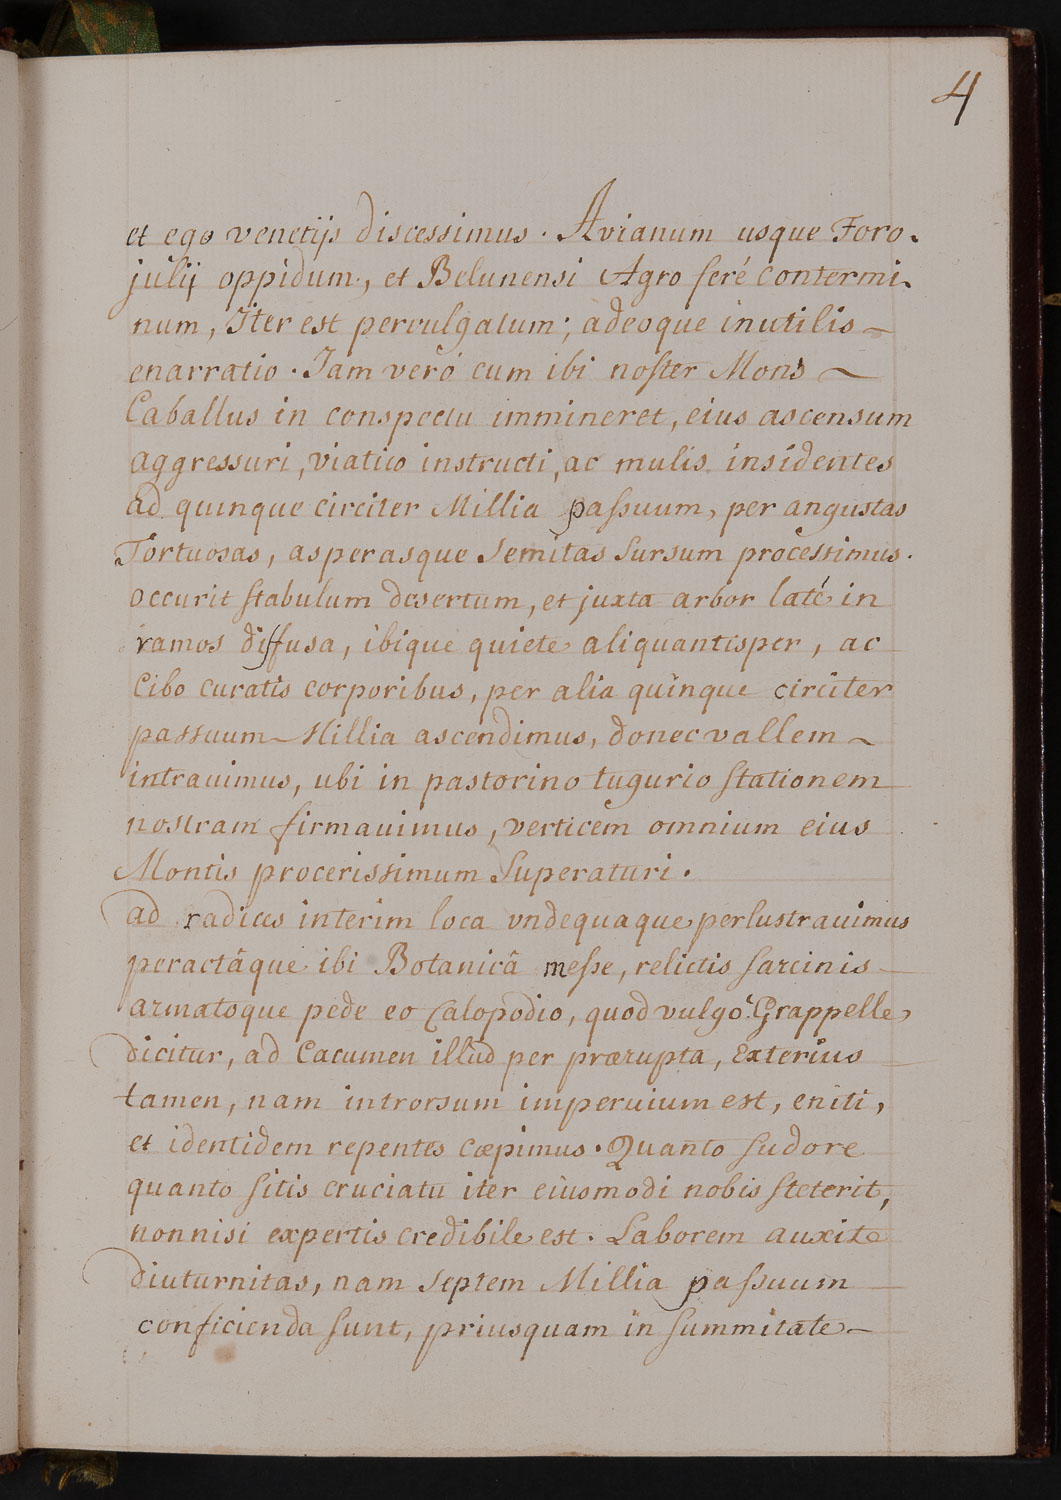 4
et ego venetijs discessimus. Avianum usque Foro-
julij oppidum, et Belunensi Agro feré contermi-
num, Iter est pervulgatum; adeoque inutilis
enarratio. Iam veró cum ibi noster Mons
Caballus in conspectu immineret, eius ascensum
aggressuri, viatico instructi, ac mulis insidentes
ad quinque circiter Millia passuum, per angustas
Tortuosas, asperasque Semitas sursum processimus.
occurit stabulum desertum, et juxta arbor laté in
ramos diffusa, ibique quiete aliquantisper, ac
Cibo curatis corporibus, per alia quinque circiter
passuum Millia ascendimus, donec vallem
intrauimus, ubi in pastorino tugurio stationem
nostram firmauimus, verticem omnium eius
Montis procerissimum Superaturi.
ad radices interim loca vndequaque perlustrauimus
peractâque ibi Botanicâ messe, relictis sarcinis
armatoque pede eo Calopodio, quod vulgò Grappelle
dicitur, ad Cacumen illud per prærupta, Exterius
tamen, nam introrsum imperuium est, eniti,
et identidem repentes cæpimus. Quanto sudore
quanto sitis cruciatu iter eiusmodi nobis steterit,
nonnisi expertis credibile est. Laborem auxit
diuturnitas, nam Septem Millia passuum
conficienda sunt, priusquam in summitate